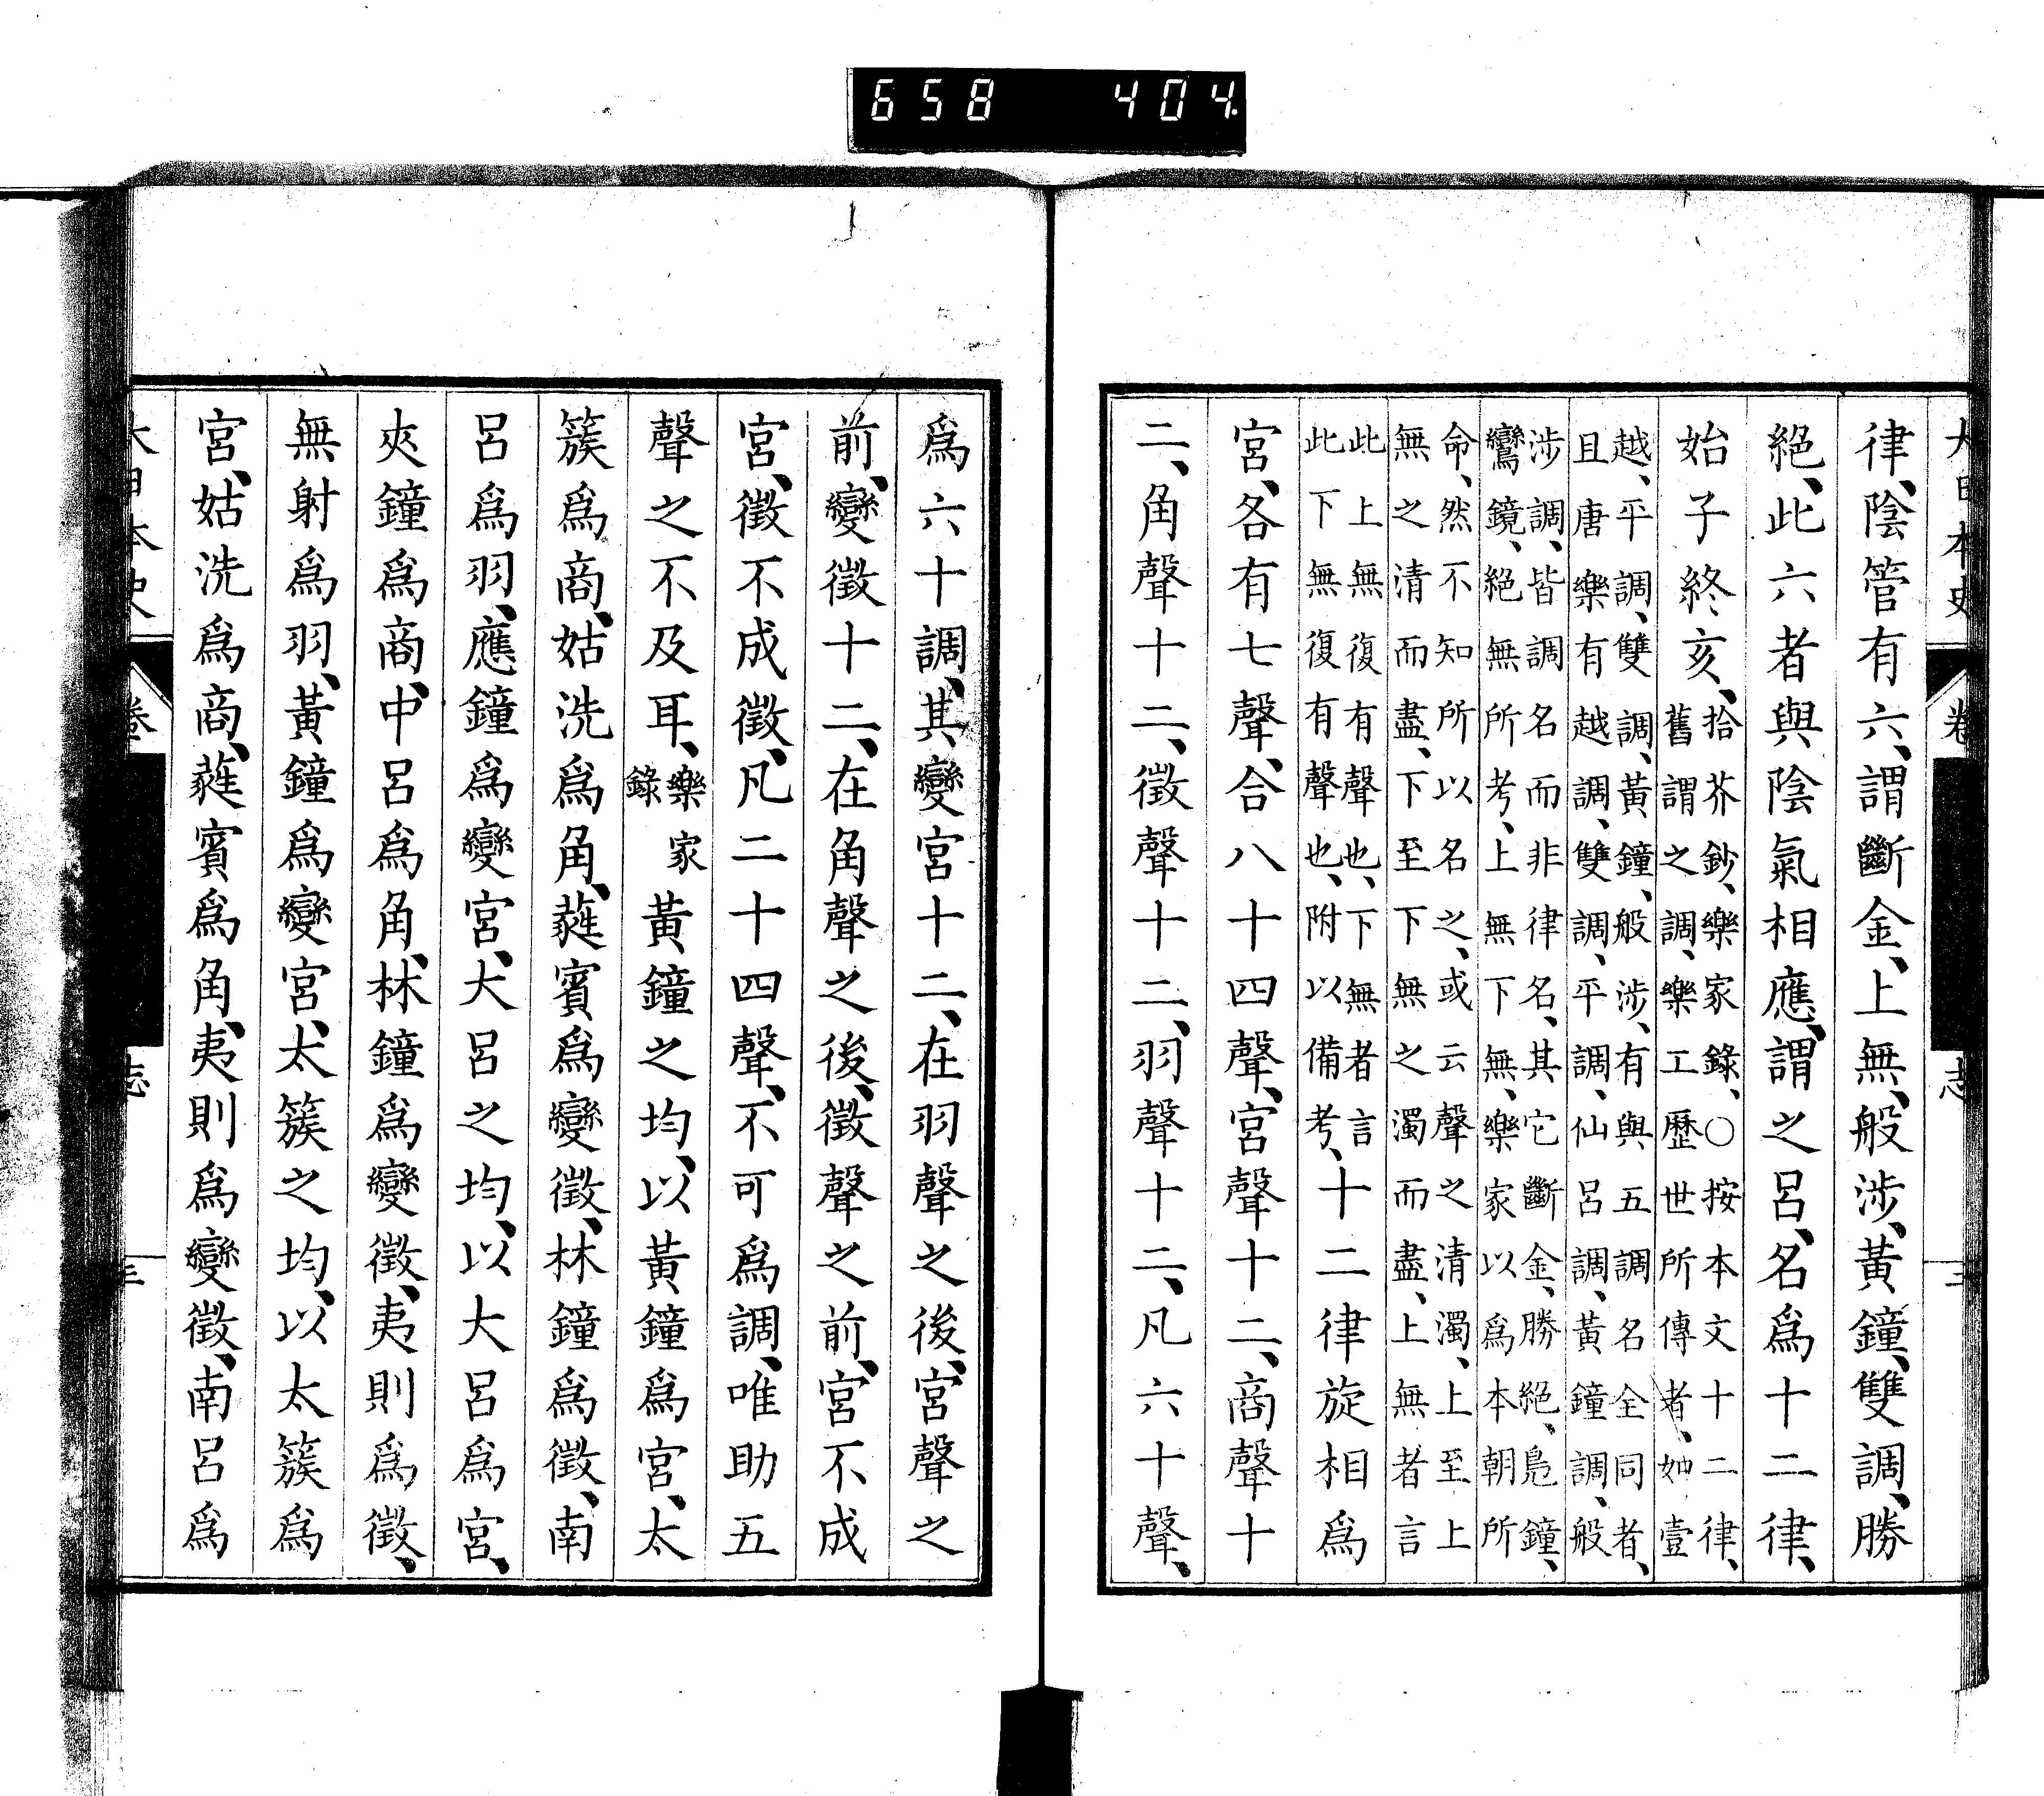 658 404
大日本史 卷 志 三
律、陰管有六、謂斷金、上無、般涉、黃鐘、雙調、勝
絕、此六者與陰氣相應、謂之呂、名爲十二律、
始子終亥、
拾芥鈔、樂家錄、○按本文十二律、
舊謂之調、樂工歷世所傳者、如壹
越、平調、雙調、黃鐘、般涉、有與五調名全同者、
且唐樂有越調、雙調、平調、仙呂調、黃鐘調、般
涉調、皆調名而非律名、其它斷金、勝絕、鳧鐘、
鸞鏡、絕無所考、上無下無、樂家以爲本朝所
命、然不知所以名之、或云聲之清濁、上至上
無之清而盡、下至下無之濁而盡、上無者言
此上無復有聲也、下無者言
此下無復有聲也、附以備考、
十二律旋相爲
宮、各有七聲、合八十四聲、宮聲十二、商聲十
二、角聲十二、徵聲十二、羽聲十二、凡六十聲、
爲六十調、其變宮十二、在羽聲之後、宮聲之
前、變徵十二、在角聲之後、徵聲之前、宮不成
宮、徵不成徵、凡二十四聲、不可爲調、唯助五
聲之不及耳、
樂家
錄
黃鐘之均、以黃鐘爲宮、太
簇爲商、姑洗爲角、蕤賓爲變徵、林鐘爲徵、南
呂爲羽、應鐘爲變宮、大呂之均、以大呂爲宮、
夾鐘爲商、中呂爲角、林鐘爲變徵、夷則爲徵、
無射爲羽、黃鐘爲變宮、太簇之均、以太簇爲
宮、姑洗爲商、蕤賓爲角、夷則爲變徵、南呂爲
大日本史 卷 志 三